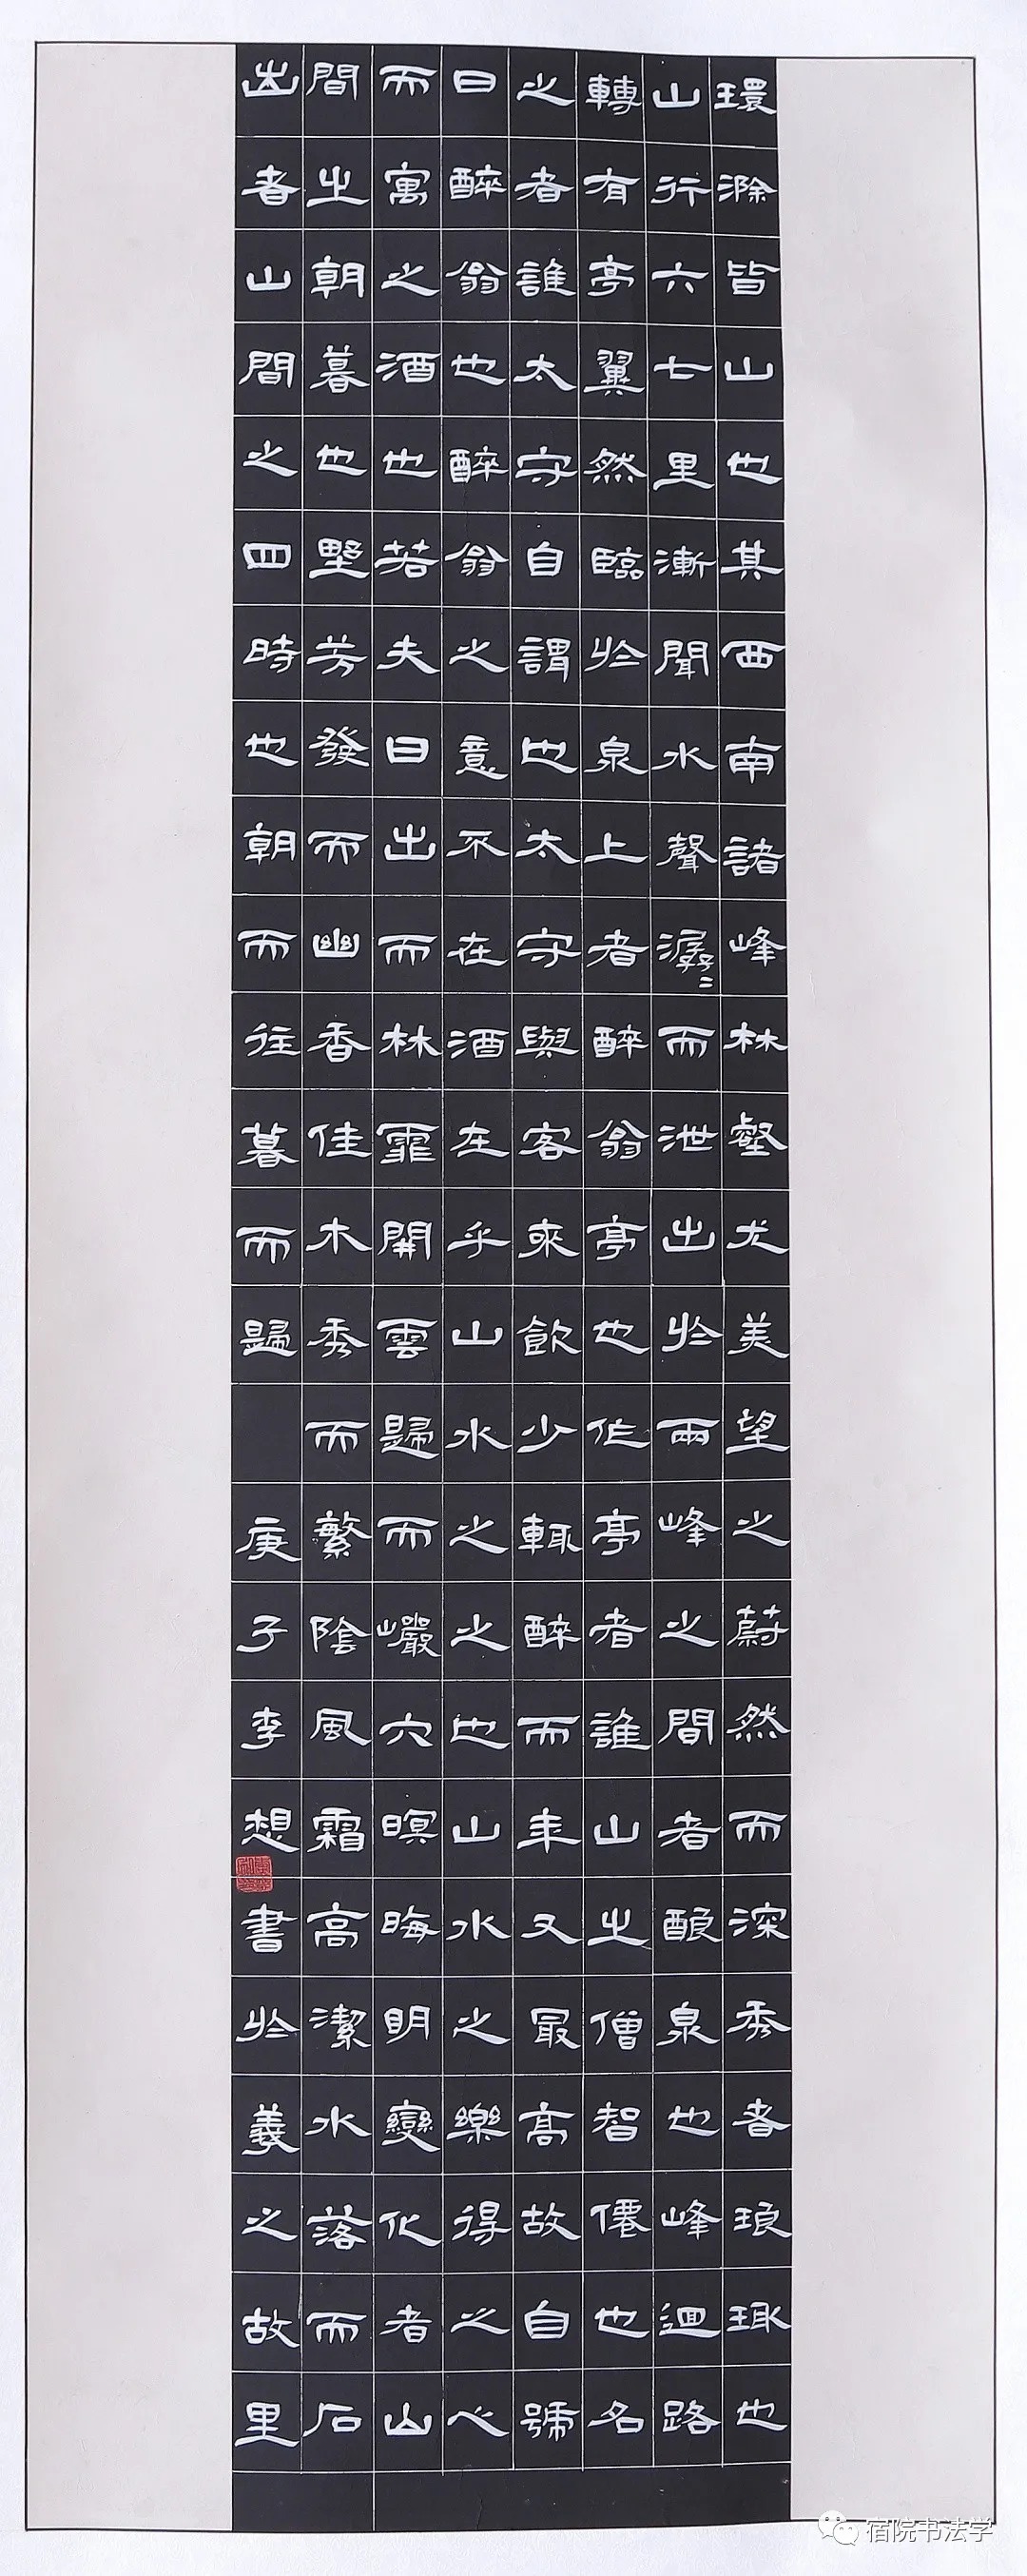 環滁皆山也其西南諸峰林壑尤美望之蔚然而深秀者琅琊也
山行六七里漸聞水聲潺〻而泄出於兩峰之間者酿泉也峰迴路
轉有亭翼然臨於泉上者醉翁亭也作亭者誰山之僧智僊也名
之者誰太守自謂也太守與客來飲少輒醉而年又最高故自號
曰醉翁也醉翁之意不在酒在乎山水之之也山水之樂得之心
而寓之酒也若夫日出而林霏開雲歸而巖穴暝晦明變化者山
間之朝暮也野芳發而幽香佳木秀而繁陰風霜高潔水落而石
出者山間之四時也朝而往暮而歸 庚子李想書於羲之故里
宿院书法学